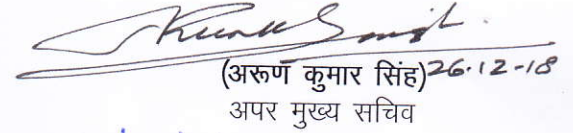 (अरूण कुमार सिंह) 26.12-18
अपर मुख्य सचिव